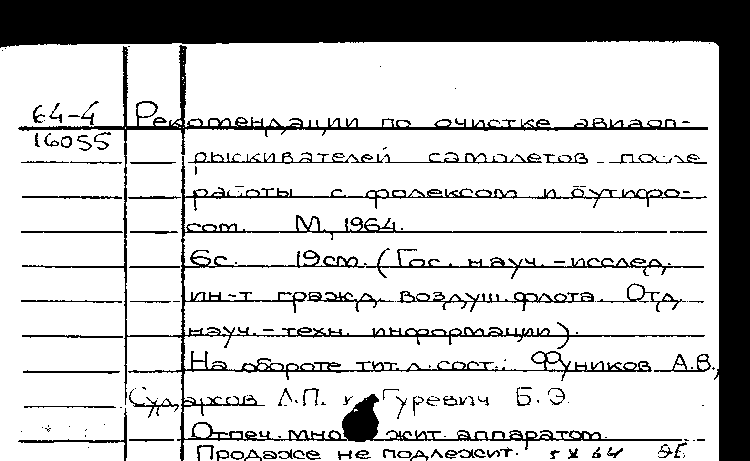 64-4 Рекомендации по очистке авиаоп-
16055
рыскивателей самолетов после
работы с фолексом и бутифо-
сом. М., 1964.
6с. 19см. (Гос. науч.-исслед.
ин-т гражд. воздуш. флота. Отд.
науч.-техн. информации).
На обороте тит. л. сост.: Фуников А.В.,
Сударков Л.П. и Гуревич Б.Э.
Отпеч. множит. аппаратом.
Продаже не подлежит.